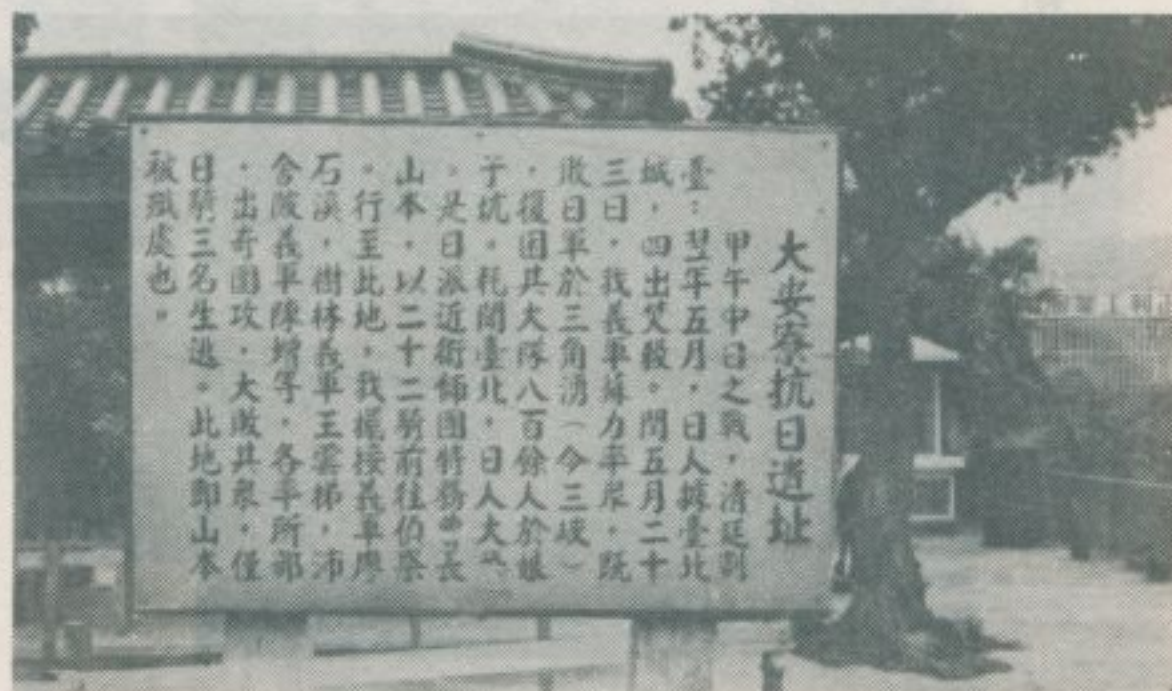 大安寮抗日遺址
甲午中日之戰，清廷割
臺；翌年五月，日人據臺北
城，四出焚殺。閏五月二十
三日，我義軍蘇力率眾，既
敗日軍於三角湧（今三峽）
，復困其大隊八百餘人於娘
子坑。耗聞臺北，日人大
。是日派近衛師團特務曹長
山本，以二十二騎前往偵察
。行至此地，我擺接義軍廖
石溪，樹林義軍王雲梯，沛
舍陂義軍陳增等，各率所部
，出奇圍攻，大敗其眾，僅
日騎三名生逃。此地即山本
被殲處也。